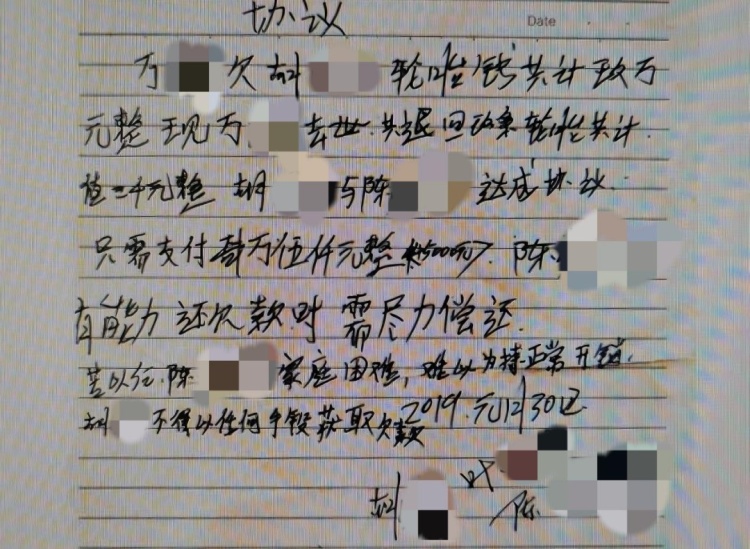 协议
Date
万 欠胡 轮胎钱共计玖万
元整 现万 去世.共退回 轮胎共计
值二千元整 胡 与陈 达成协议.
只需支付 万伍仟元整 陈
有能力还欠款时 需尽力偿还.
陈 家庭困难,难以 持正常开销.
胡 不得以任何手段获取欠款 2019.元12月30日
叶
胡 陈